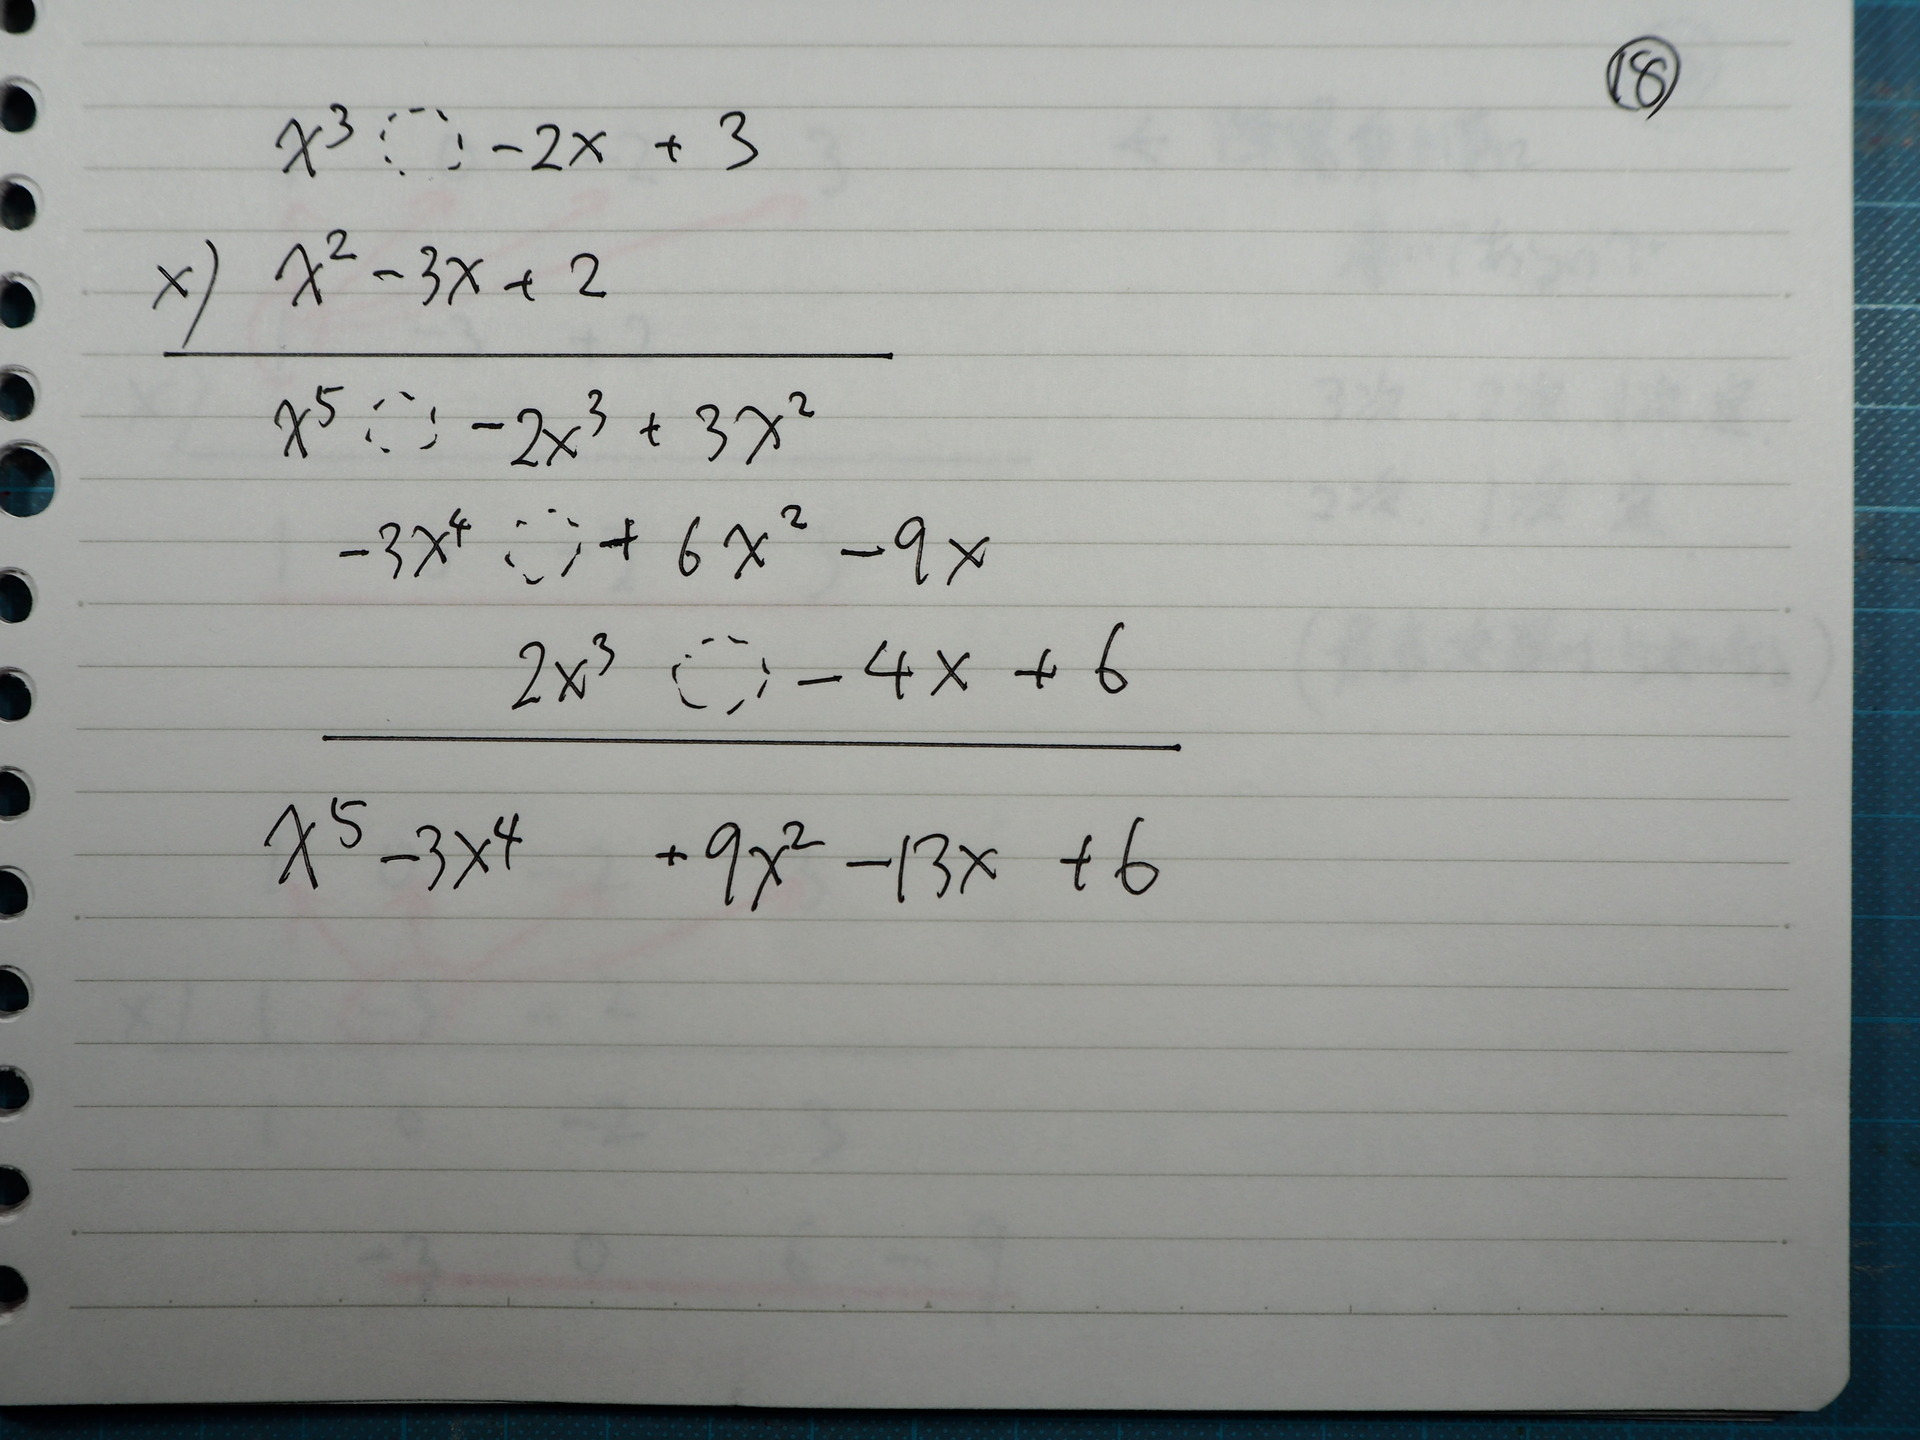 ⑱
x³ -2x + 3
x) x² -3x + 2
x⁵ -2x³ + 3x²
-3x⁴ + 6x² -9x
2x³ -4x + 6
x⁵ -3x⁴ +9x² -13x +6